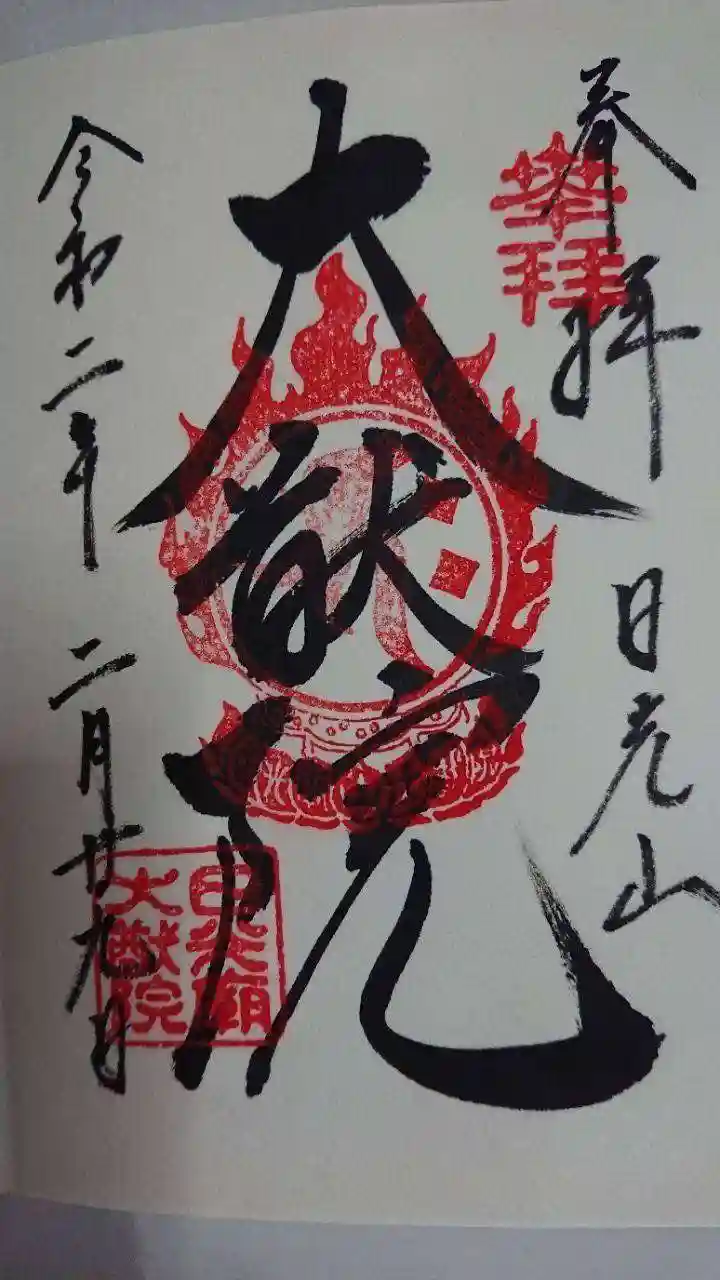 奉拝 日光山
奉拝
大猷院
令和二年 二月廿九日
日光廟
大猷院